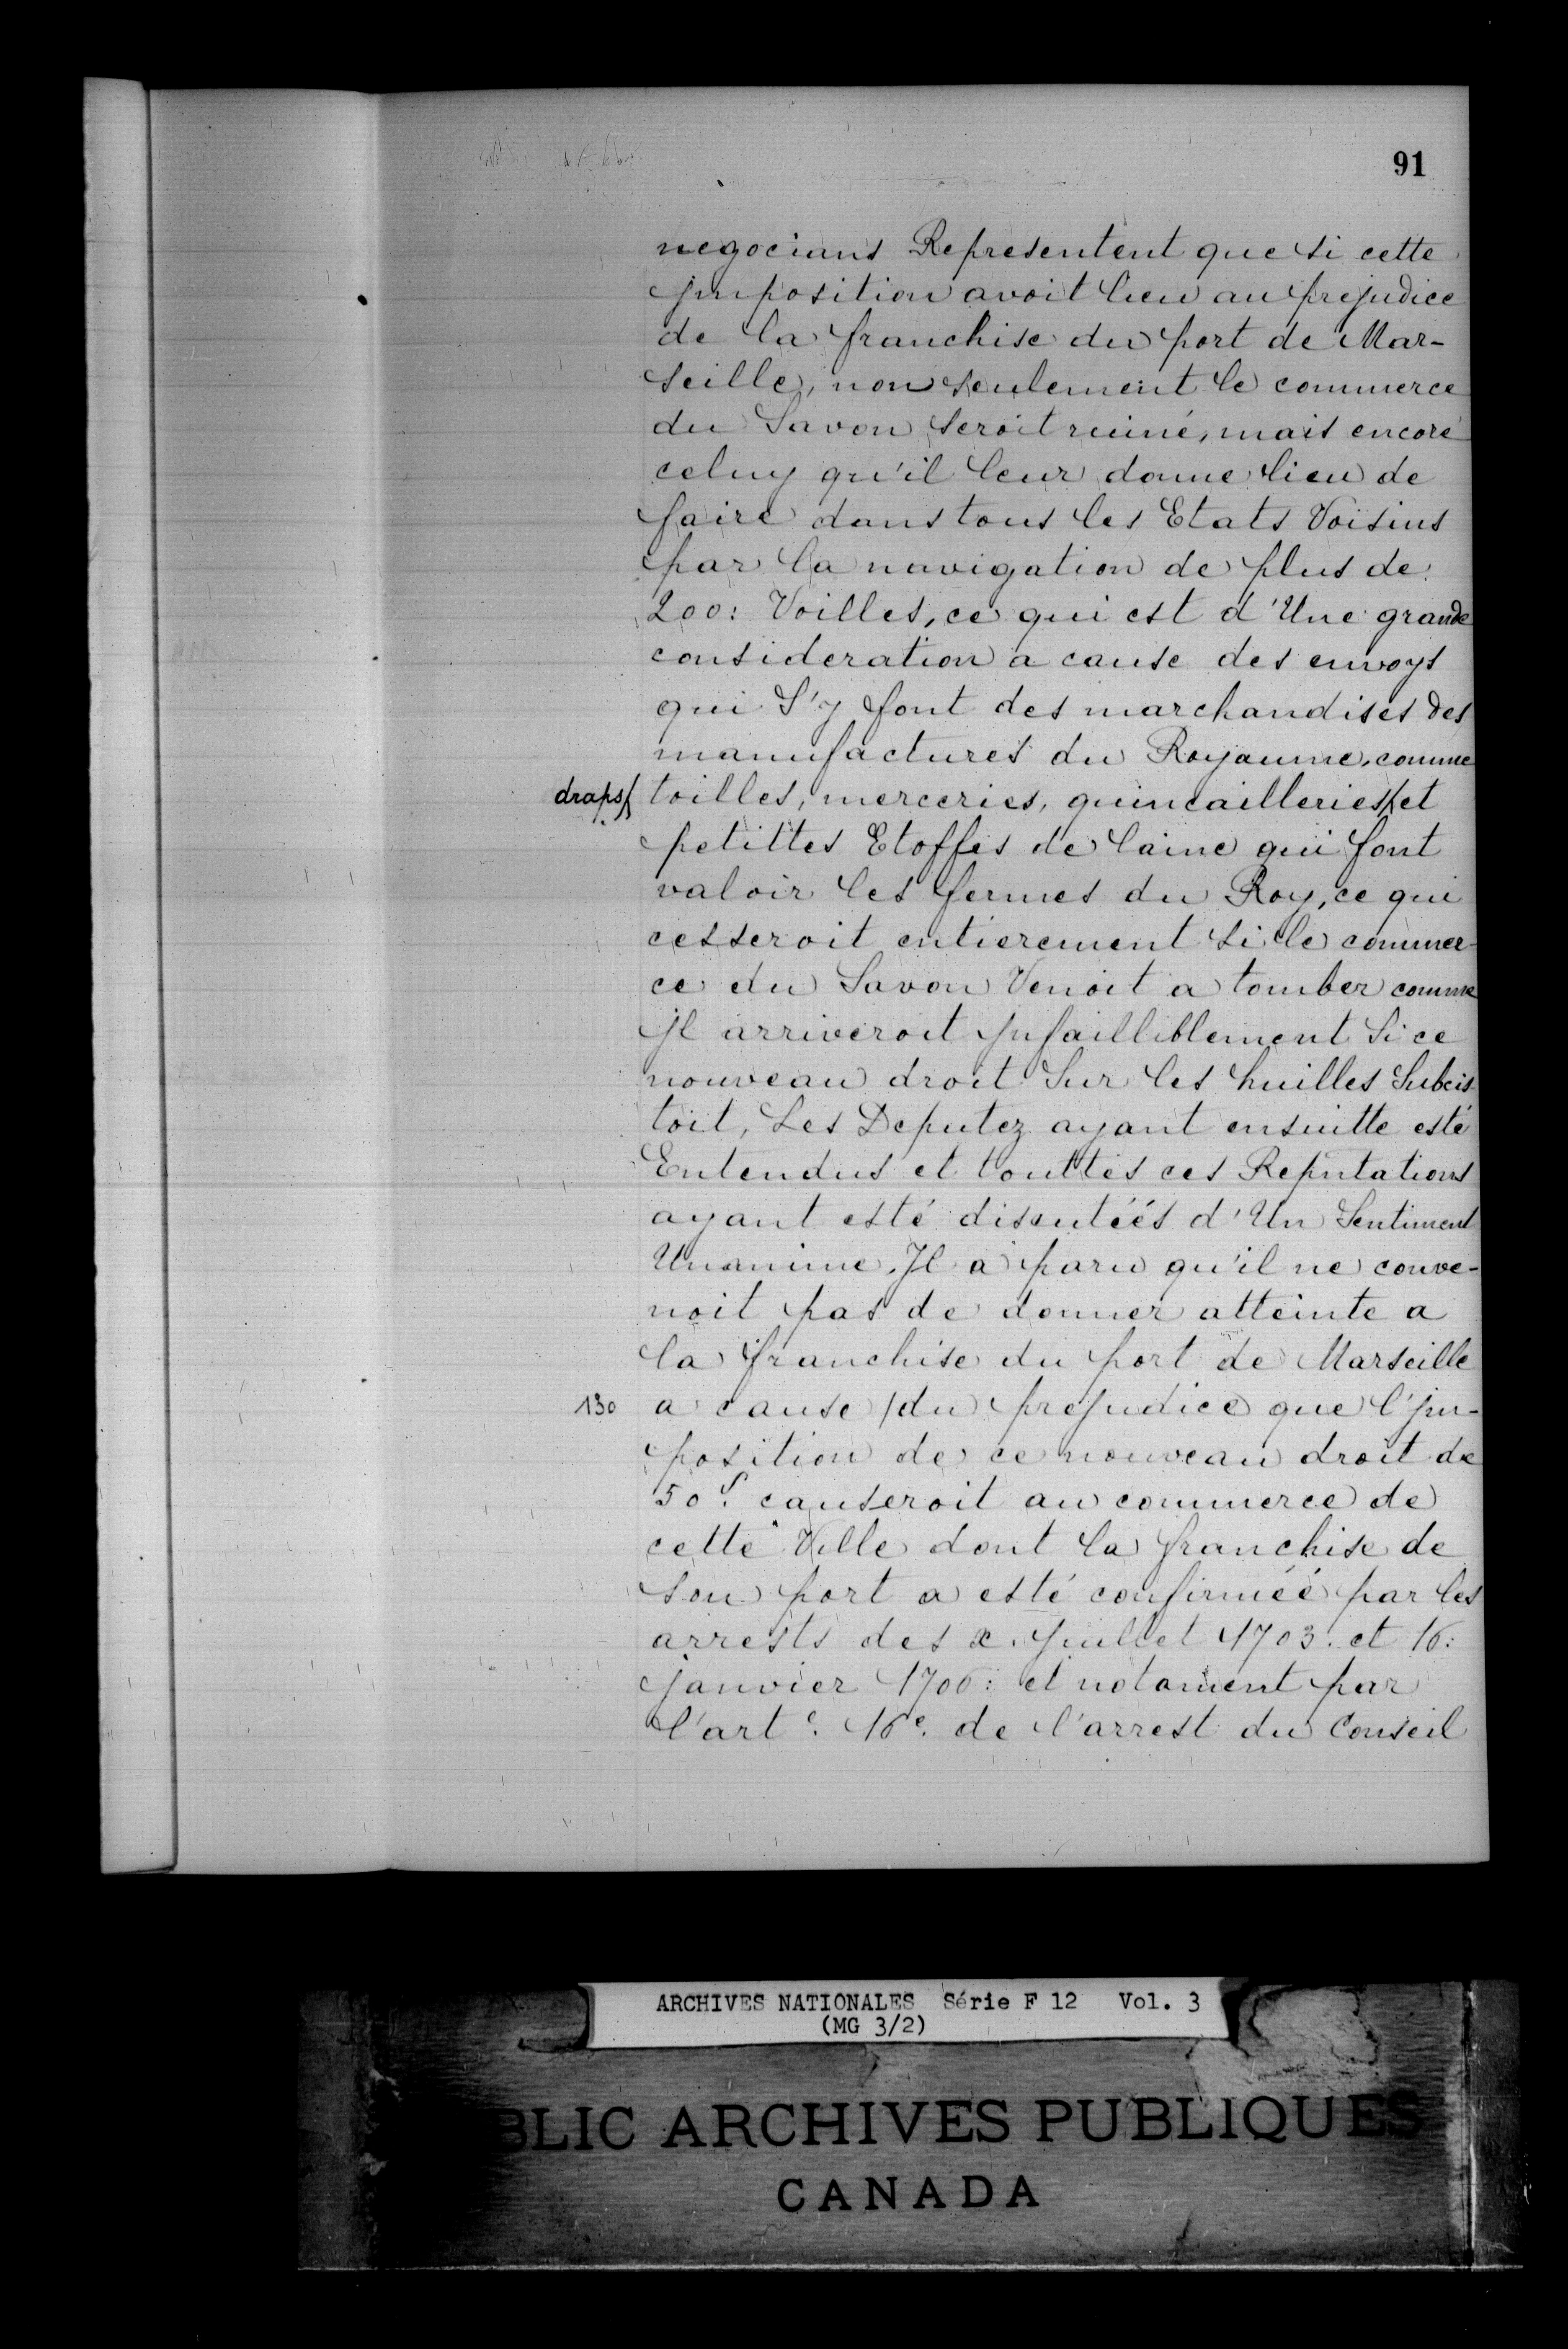 91
negocians Representent que si cette
jmposition avoit lieu au prejudice
de la franchise du port de Mar-
seille, non seulement le commerce
du Savon seroit ruiné, mais encore
celuy qu'il leur donne lieu de
faire dans tous les Etats Voisins
par la navigation de plus de
200: Voilles, ce qui est d'Une grande
consideration a cause des envoys
qui S'y font des marchandises des
manufactures du Royaume, comme
draps/ toilles, merceries, quincailleries/et
petittes Etoffes de laine qui font
valoir les fermes du Roy, ce qui
cesseroit entierement si le commer-
ce du Savon Venoit a tomber comme
jl arriveroit jnfailliblement Si ce
nouveau droit Sur les huilles Subcis-
toit, Les Deputez ayant ensuitte esté
Entendus et touttes ces Reputations
ayant esté discutéés d'Un Sentiment
Unanime. Jl a paru qu'il ne conve-
noit pas de donner atteinte a
la franchise du port de Marseille
130 a cause /du prejudice que l'jm-
position de ce nouveau droit de
50 s. causeroit au commerce de
cette Ville dont la franchise de
son port a esté confirméé par les
arrests des x. Juillet 1703. et 16:
janvier 1706: et notament par
l'art e. 16e. de l'arrest du Conseil
ARCHIVES NATIONALES Série F 12 Vol. 3
(MG 3/2)
BLIC ARCHIVES PUBLIQUES
CANADA